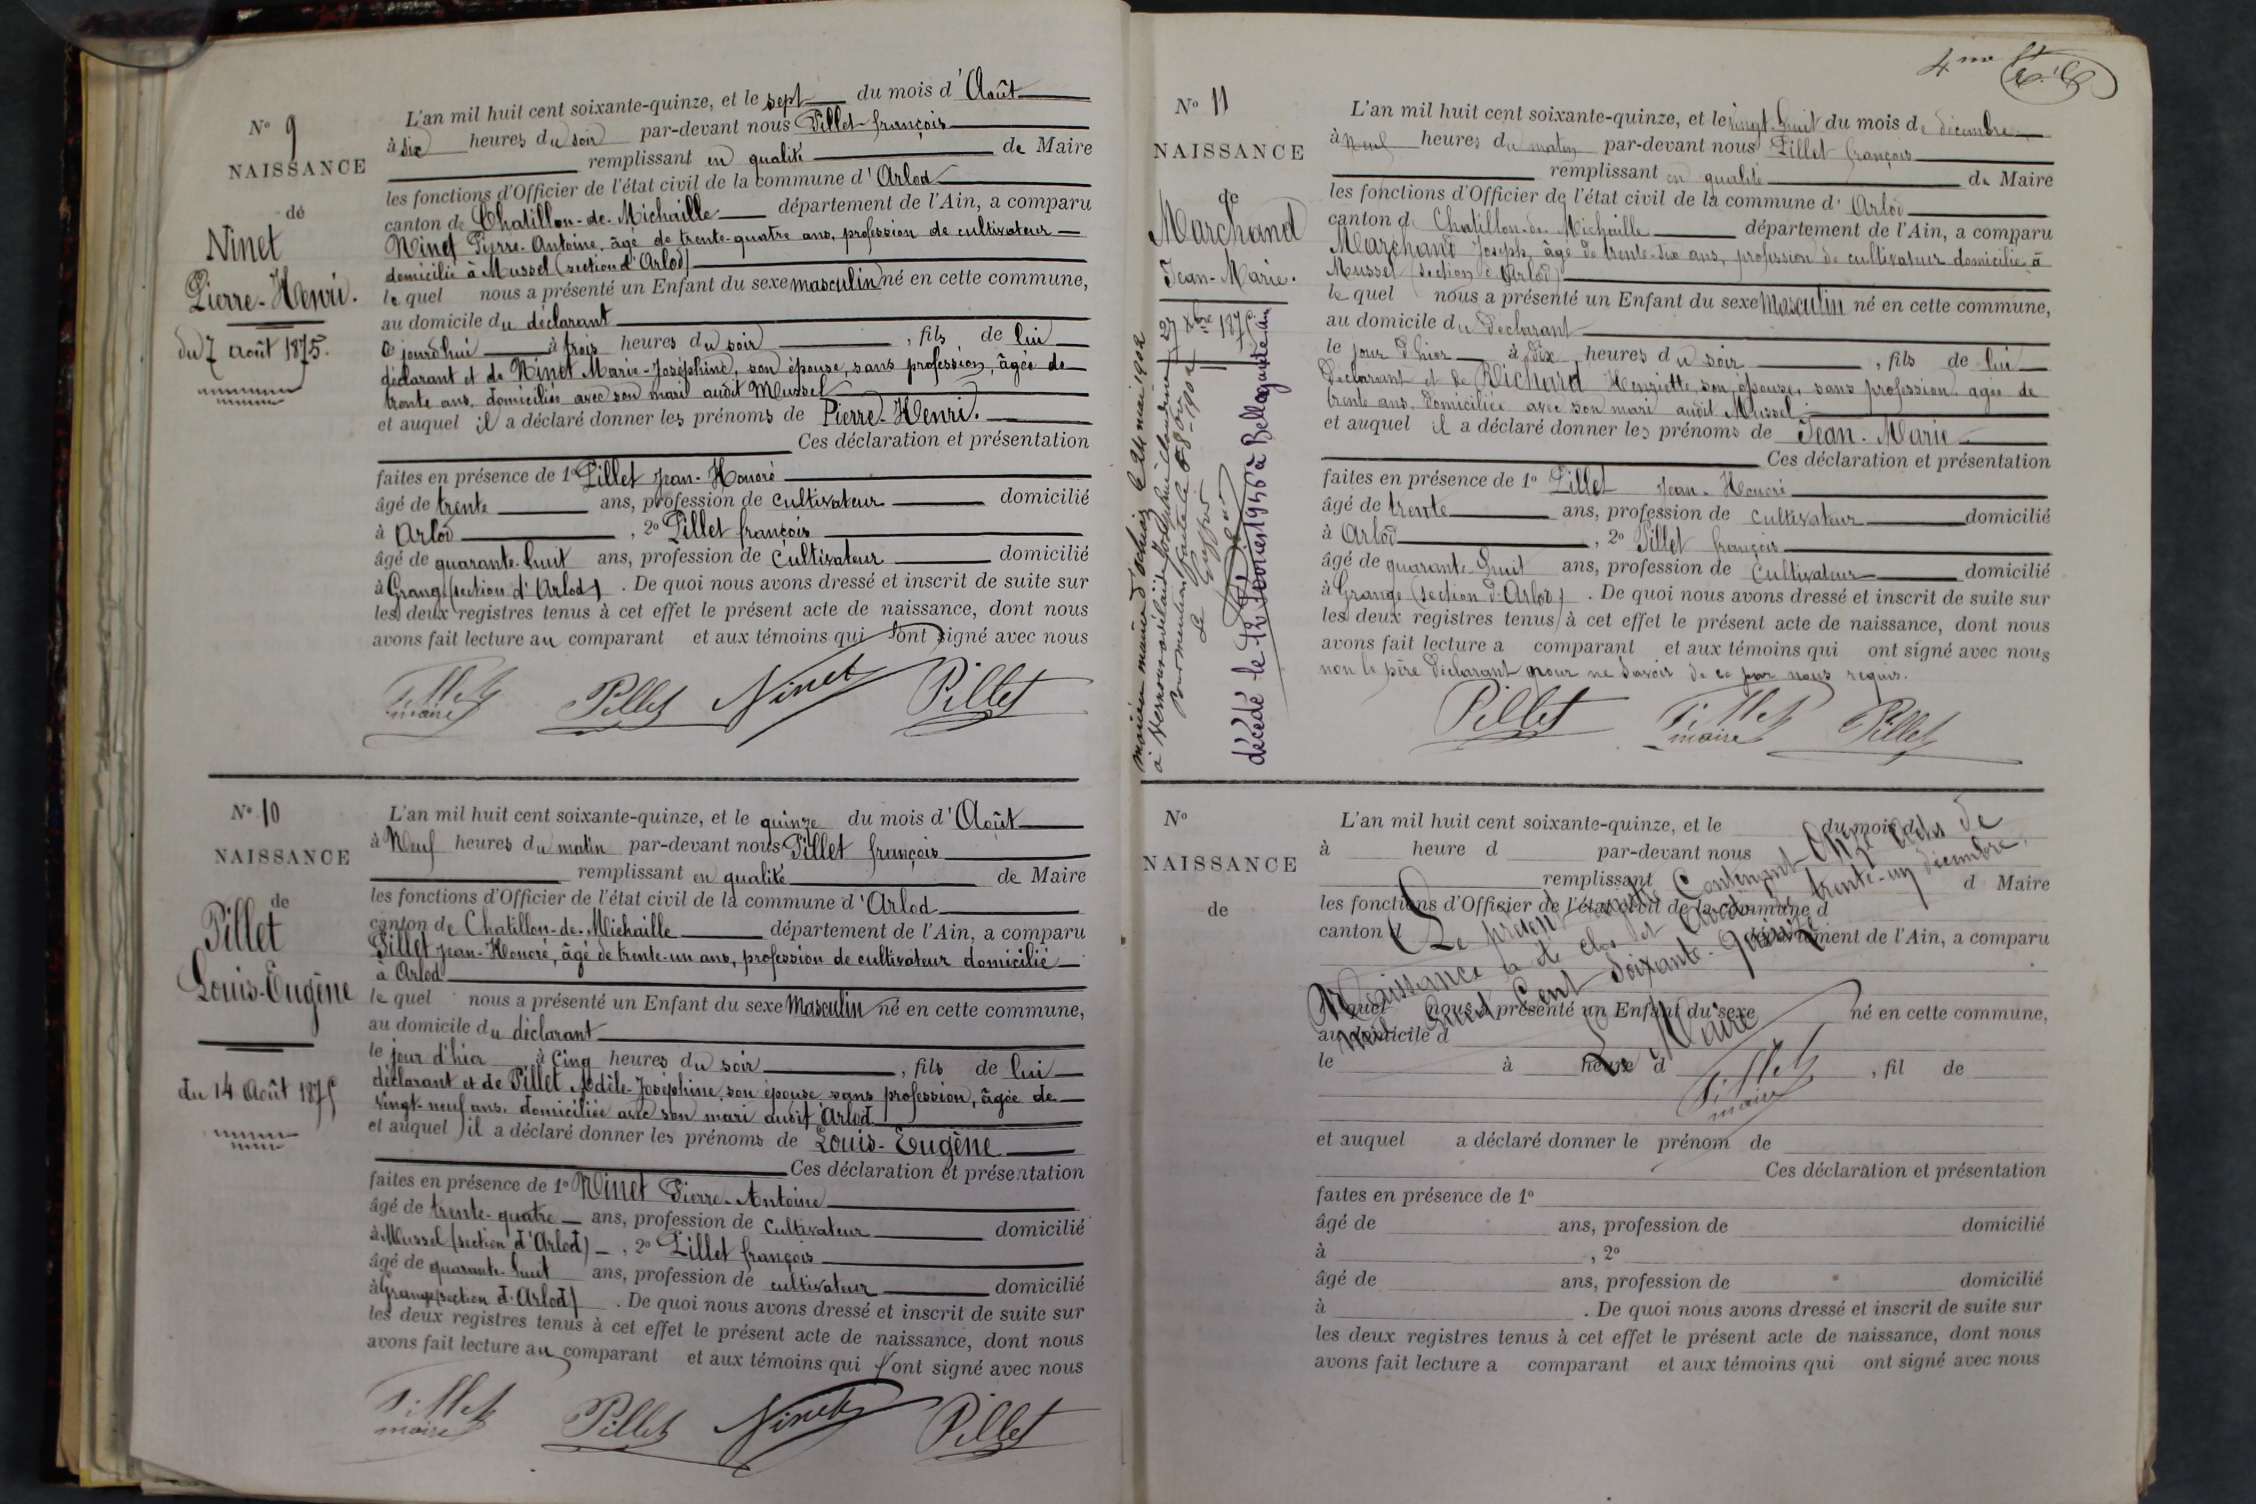 N° 9
NAISSANCE
de
Ninet
Pierre-Henri.
du 7 août 1875.
L'an mil huit cent soixante-quinze, et le sept du mois d'Août
à six heures du soir par-devant nous Pillet françois
remplissant en qualité de Maire
les fonctions d'Officier de l'état civil de la commune d'Arlod
canton de Chatillon-de-Michaille département de l'Ain, a comparu
Ninet Pierre-Antoine, âgé de trente-quatre ans, profession de cultivateur
domicilié à Mussel (section d'Arlod)
le quel nous a présenté un Enfant du sexe masculin né en cette commune,
au domicile du déclarant
Ce jourd'hui à trois heures du soir, fils de lui
déclarant et de Ninet Marie-Joséphine, son épouse, sans profession, âgée de
trente ans, domiciliée avec son mari audit Mussel
et auquel il a déclaré donner les prénoms de Pierre-Henri.
Ces déclaration et présentation
faites en présence de 1° Pillet Jean-Honoré
âgé de trente ans, profession de cultivateur domicilié
à Arlod, 2° Pillet françois
âgé de quarante-huit ans, profession de cultivateur domicilié
à Grange (section d'Arlod). De quoi nous avons dressé et inscrit de suite sur
les deux registres tenus à cet effet le présent acte de naissance, dont nous
avons fait lecture au comparant et aux témoins qui sont signé avec nous
Pillet maire Pillet Ninet Pillet
N° 10
NAISSANCE
de
Pillet
Louis-Eugène
du 14 Août 1875
L'an mil huit cent soixante-quinze, et le quinze du mois d'Août
à Neuf heures du matin par-devant nous Pillet françois
remplissant en qualité de Maire
les fonctions d'Officier de l'état civil de la commune d'Arlod
canton de Chatillon-de-Michaille département de l'Ain, a comparu
Pillet Jean-Honoré, âgé de trente-un ans, profession de cultivateur domicilié
à Arlod
le quel nous a présenté un Enfant du sexe Masculin né en cette commune,
au domicile du déclarant
le jour d'hier à cinq heures du soir, fils de lui
déclarant et de Pillet Adèle-Joséphine, son épouse sans profession, âgée de
vingt-neuf ans, domiciliée avec son mari audit Arlod
et auquel il a déclaré donner les prénoms de Louis-Eugène
Ces déclaration et présentation
faites en présence de 1° Ninet Pierre-Antoine
âgé de trente-quatre ans, profession de cultivateur domicilié
à Mussel (section d'Arlod), 2° Pillet françois
âgé de quarante-huit ans, profession de cultivateur domicilié
à Grange (section d'Arlod). De quoi nous avons dressé et inscrit de suite sur
les deux registres tenus à cet effet le présent acte de naissance, dont nous
avons fait lecture au comparant et aux témoins qui ont signé avec nous
Pillet maire Pillet Ninet Pillet
4me
N° 11
NAISSANCE
de
Marchand
Jean-Marie.
27 Xbre 1875
mai 1902
décédé le 1956 à Bellegarde Ain
L'an mil huit cent soixante-quinze, et le vingt-huit du mois de décembre
à Neuf heures du matin par-devant nous Pillet françois
remplissant en qualité de Maire
les fonctions d'Officier de l'état civil de la commune d'Arlod
canton de Chatillon-de-Michaille département de l'Ain, a comparu
Marchand Joseph, âgé de trente-six ans, profession de cultivateur domicilié à
Mussel (section d'Arlod)
le quel nous a présenté un Enfant du sexe Masculin né en cette commune,
au domicile du déclarant
le jour d'hier à dix heures du soir, fils de lui
déclarant et de Richard Henriette son épouse, sans profession âgée de
trente ans domiciliée avec son mari audit Mussel
et auquel il a déclaré donner les prénoms de Jean-Marie
Ces déclaration et présentation
faites en présence de 1° Pillet Jean-Honoré
âgé de trente ans, profession de cultivateur domicilié
à Arlod, 2° Pillet françois
âgé de quarante-huit ans, profession de cultivateur domicilié
à Grange (section d'Arlod). De quoi nous avons dressé et inscrit de suite sur
les deux registres tenus à cet effet le présent acte de naissance, dont nous
avons fait lecture a comparant et aux témoins qui ont signé avec nous
non le père déclarant pour ne savoir de ce par nous requis.
Pillet Pillet maire Pillet
N°
NAISSANCE
de
L'an mil huit cent soixante-quinze, et le du mois d
à heure d par-devant nous
remplissant d Maire
les fonctions d'Officier de l'état civil de la commune d
canton d département de l'Ain, a comparu
l quel nous a présenté un Enfant du sexe né en cette commune,
au domicile d
le à heure d, fil de
et auquel a déclaré donner le prénom de
Ces déclaration et présentation
faites en présence de 1°
âgé de ans, profession de domicilié
à, 2°
âgé de ans, profession de domicilié
à. De quoi nous avons dressé et inscrit de suite sur
les deux registres tenus à cet effet le présent acte de naissance, dont nous
avons fait lecture a comparant et aux témoins qui ont signé avec nous
Le présent registre Contenant Onze actes de
Naissance a été clos et arrêté le trente-un décembre
mil huit Cent Soixante-quinze
Le Maire
Pillet
maire